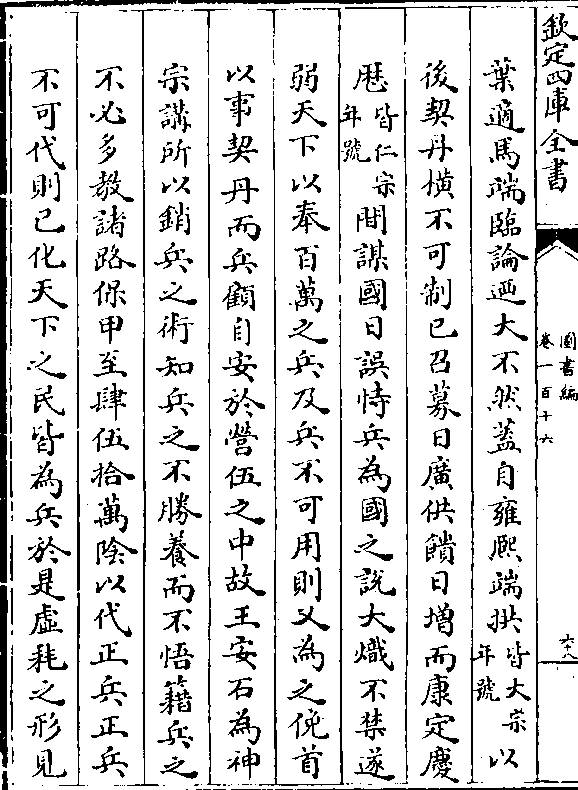 欽定四庫全書
圖書編
卷一百十六
六十八
葉適馬端臨論迺大不然蓋自雍熙端拱皆太宗年號以
後契丹橫不可制已召募日廣供饋日增而康定慶
厯皆仁宗年號間謀國日誤恃兵為國之說大熾不禁遂
弱天下以奉百萬之兵及兵不可用則又為之俛首
以事契丹而兵顧自安於營伍之中故王安石為神
宗講所以銷兵之術知兵之不勝養而不悟籍兵之
不必多教諸路保甲至肆伍拾萬陰以代正兵正兵
不可代則已化天下之民皆為兵於是虛耗之形見